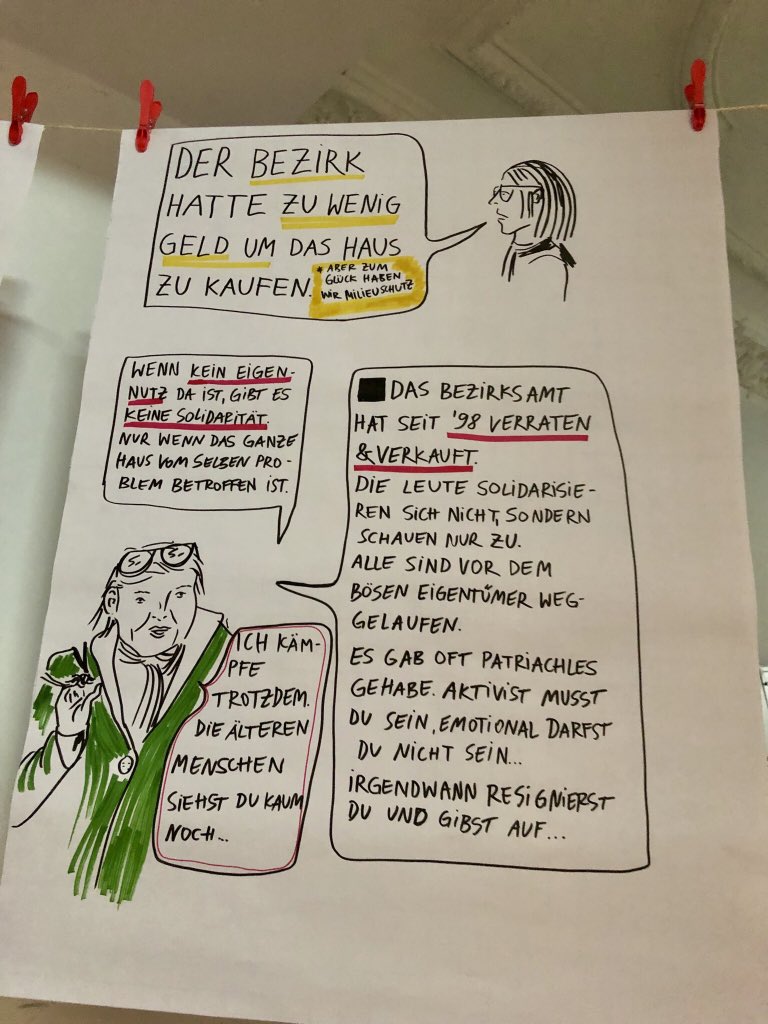 DER BEZIRK
HATTE ZU WENIG
GELD UM DAS HAUS
ZU KAUFEN.
* ABER ZUM
GLÜCK HABEN
WIR MILIEUSCHUTZ
WENN KEIN EIGEN-
NUTZ DA IST, GIBT ES
KEINE SOLIDARITÄT.
NUR WENN DAS GANZE
HAUS VOM SELBEN PRO-
BLEM BETROFFEN IST.
DAS BEZIRKSAMT
HAT SEIT '98 VERRATEN
& VERKAUFT.
DIE LEUTE SOLIDARISIE-
REN SICH NICHT, SONDERN
SCHAUEN NUR ZU.
ALLE SIND VOR DEM
BÖSEN EIGENTÜMER WEG-
GELAUFEN.
ES GAB OFT PATRIACHLES
GEHABE. AKTIVIST MUSST
DU SEIN, EMOTIONAL DARFST
DU NICHT SEIN...
IRGENDWANN RESIGNIERST
DU UND GIBST AUF...
ICH KÄM-
PFE
TROTZDEM.
DIE ÄLTEREN
MENSCHEN
SIEHST DU KAUM
NOCH...